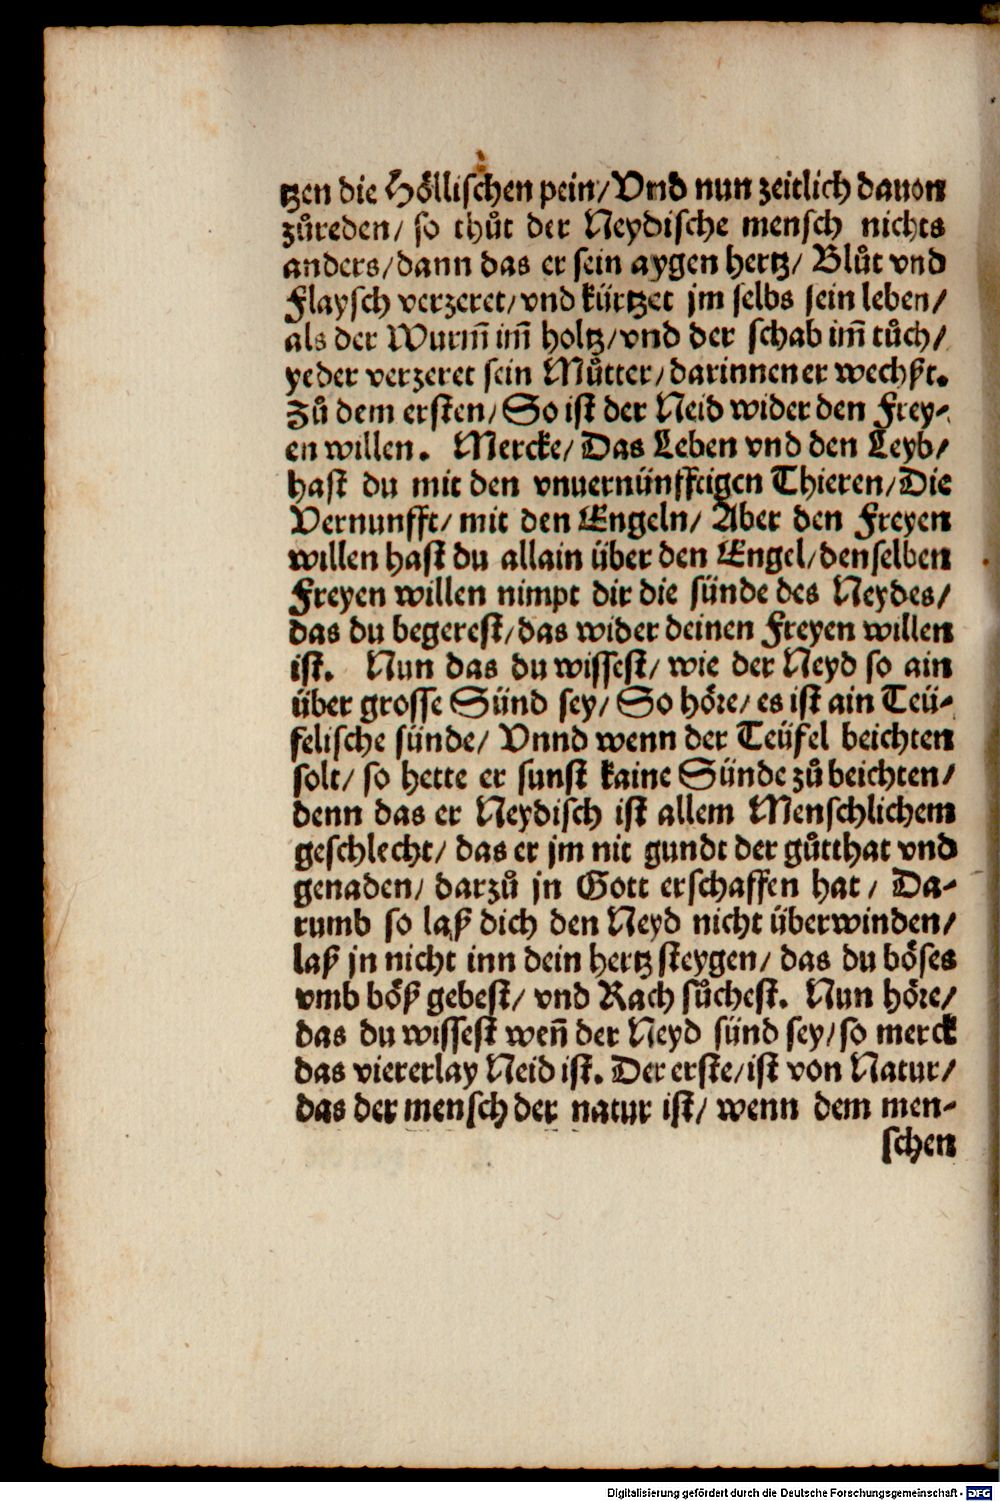 tzen die Höllischen pein/ Vnd nun zeitlich dauon
zůreden/ so thůt der Neydische mensch nichts
anders/ dann das er sein aygen hertz/ Blůt vnd
Flaysch verzeret/ vnd kürtzet jm selbs sein leben/
als der Wurm̄ im̄ holtz/ vnd der schab im̄ tůch/
yeder verzeret sein Můtter/ darinnen er wechßt.
Zů dem ersten/ So ist der Neid wider den Frey-
en willen. Mercke/ Das Leben vnd den Leyb/
hast du mit den vnuernünfftigen Thieren/ Die
Vernunfft/ mit den Engeln/ Aber den Freyen
willen hast du allain über den Engel/ denselben
Freyen willen nimpt dir die sünde des Neydes/
das du begerest/ das wider deinen Freyen willen
ist. Nun das du wissest/ wie der Neyd so ain
über grosse Sünd sey/ So höre/ es ist ain Teü-
felische sünde/ Vnnd wenn der Teüfel beichten
solt/ so hette er sunst kaine Sünde zů beichten/
denn das er Neydisch ist allem Menschlichem
geschlecht/ das er jm nit gundt der gůtthat vnd
genaden/ darzů jn Gott erschaffen hat/ Da-
rumb so laß dich den Neyd nicht überwinden/
laß jn nicht inn dein hertz steygen/ das du böses
vmb böß gebest/ vnd Rach sůchest. Nun höre/
das du wissest wen̄ der Neyd sünd sey/ so merck
das viererlay Neid ist. Der erste/ ist von Natur/
das der mensch der natur ist/ wenn dem men-
schen
Digitalisierung gefördert durch die Deutsche Forschungsgemeinschaft - DFG